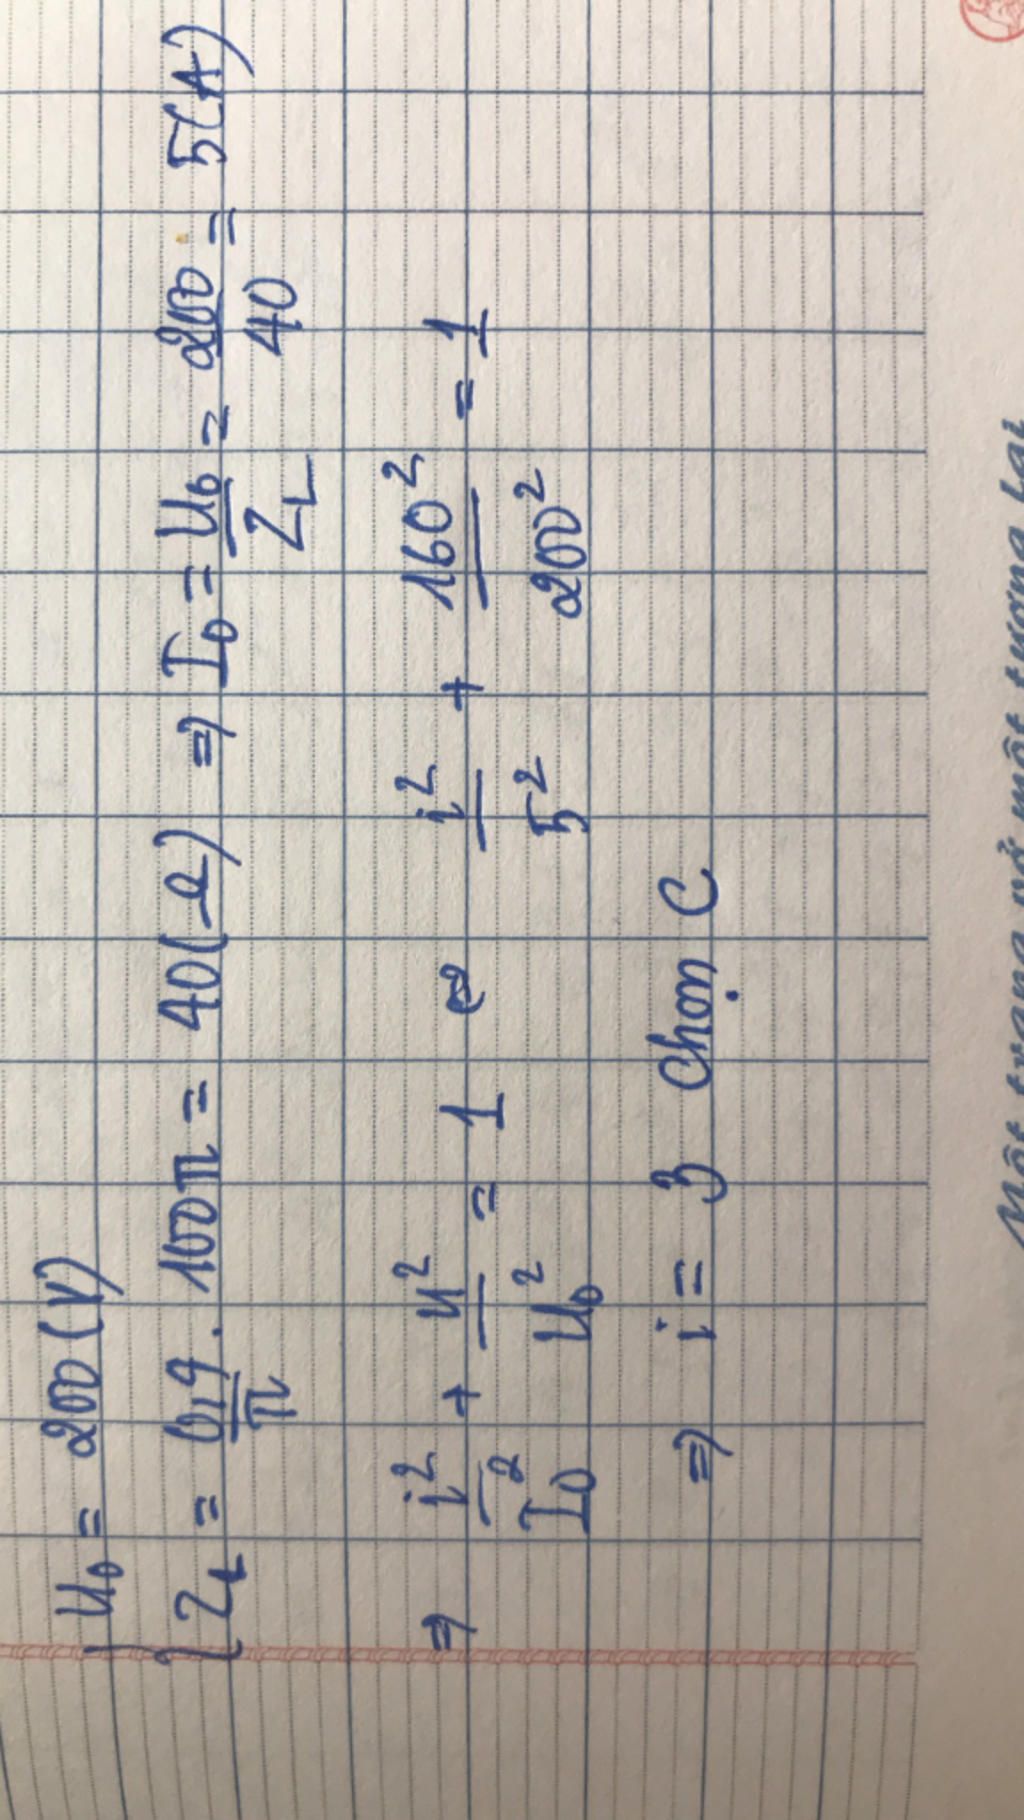 U₀ = 200 (V)
Z_L = 0,4/π . 100π = 40 (Ω) ⇒ I₀ = U₀/Z_L = 200/40 = 5 (A)
⇒ i²/I₀² + u²/U₀² = 1 ⇔ i²/5² + 160²/200² = 1
⇒ i = 3 Chọn C
Một trang vở một tương lai